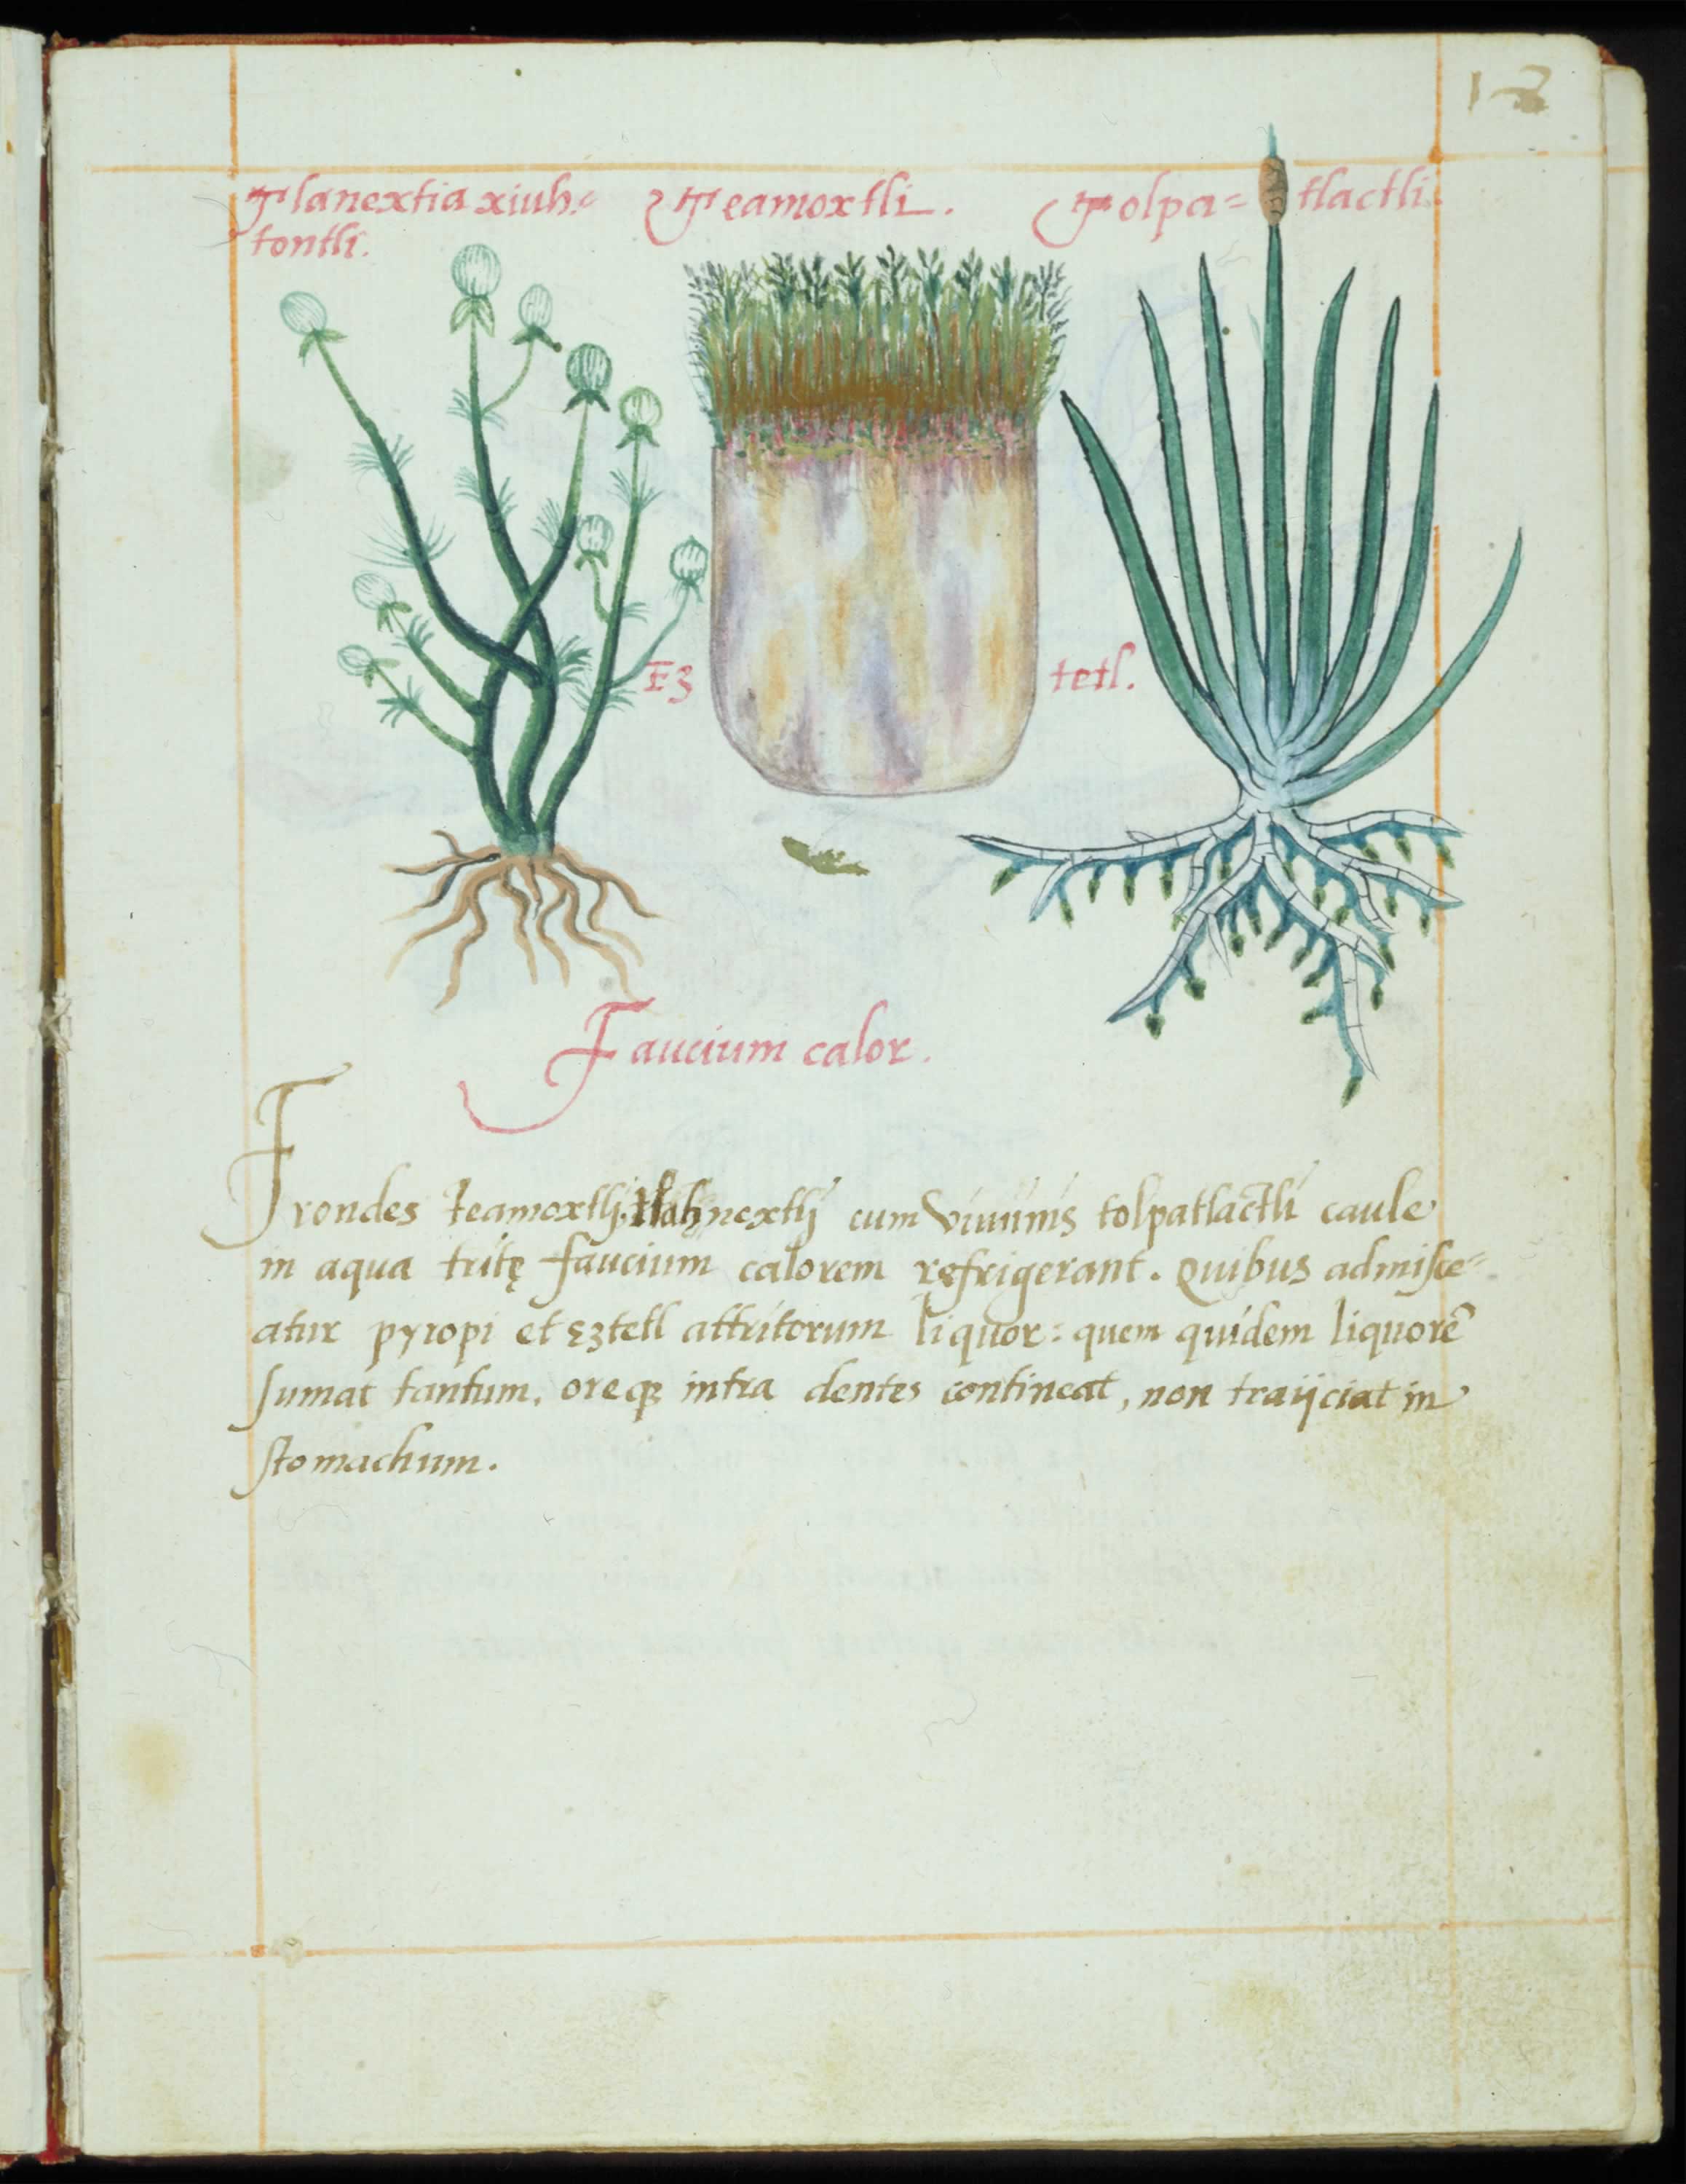 18
Tlanextia xiuh=
tontli.
Teamoxtli.
Tolpa= tlactli.
Ez
tetl.
Faucium calor.
Frondes teamoxtlj, cum viuum's tolpatlactli caule
in aqua tritę faucium calorem refrigerant. Quibus admisce=
atur pyropi et eztetl attritorum liquor: quem quidem liquorẽ
sumat tantum, oreqꝫ intra dentes contineat, non traijciat in
stomachum.